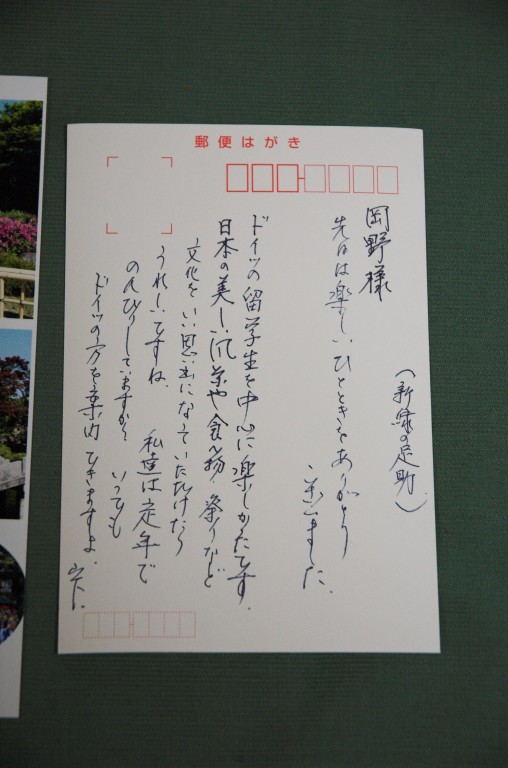 郵便はがき
(新緑の足助)
岡野様
先日は楽しいひとときをありがとう
ございました。
ドイツの留学生を中心に楽しかったです。
日本の美しい風景や食べ物、祭りなど
文化をいい思い出になっていただけたら
うれしいですね。 私達は定年で
のんびりしていますから いつでも
ドイツの方を案内できますよ。